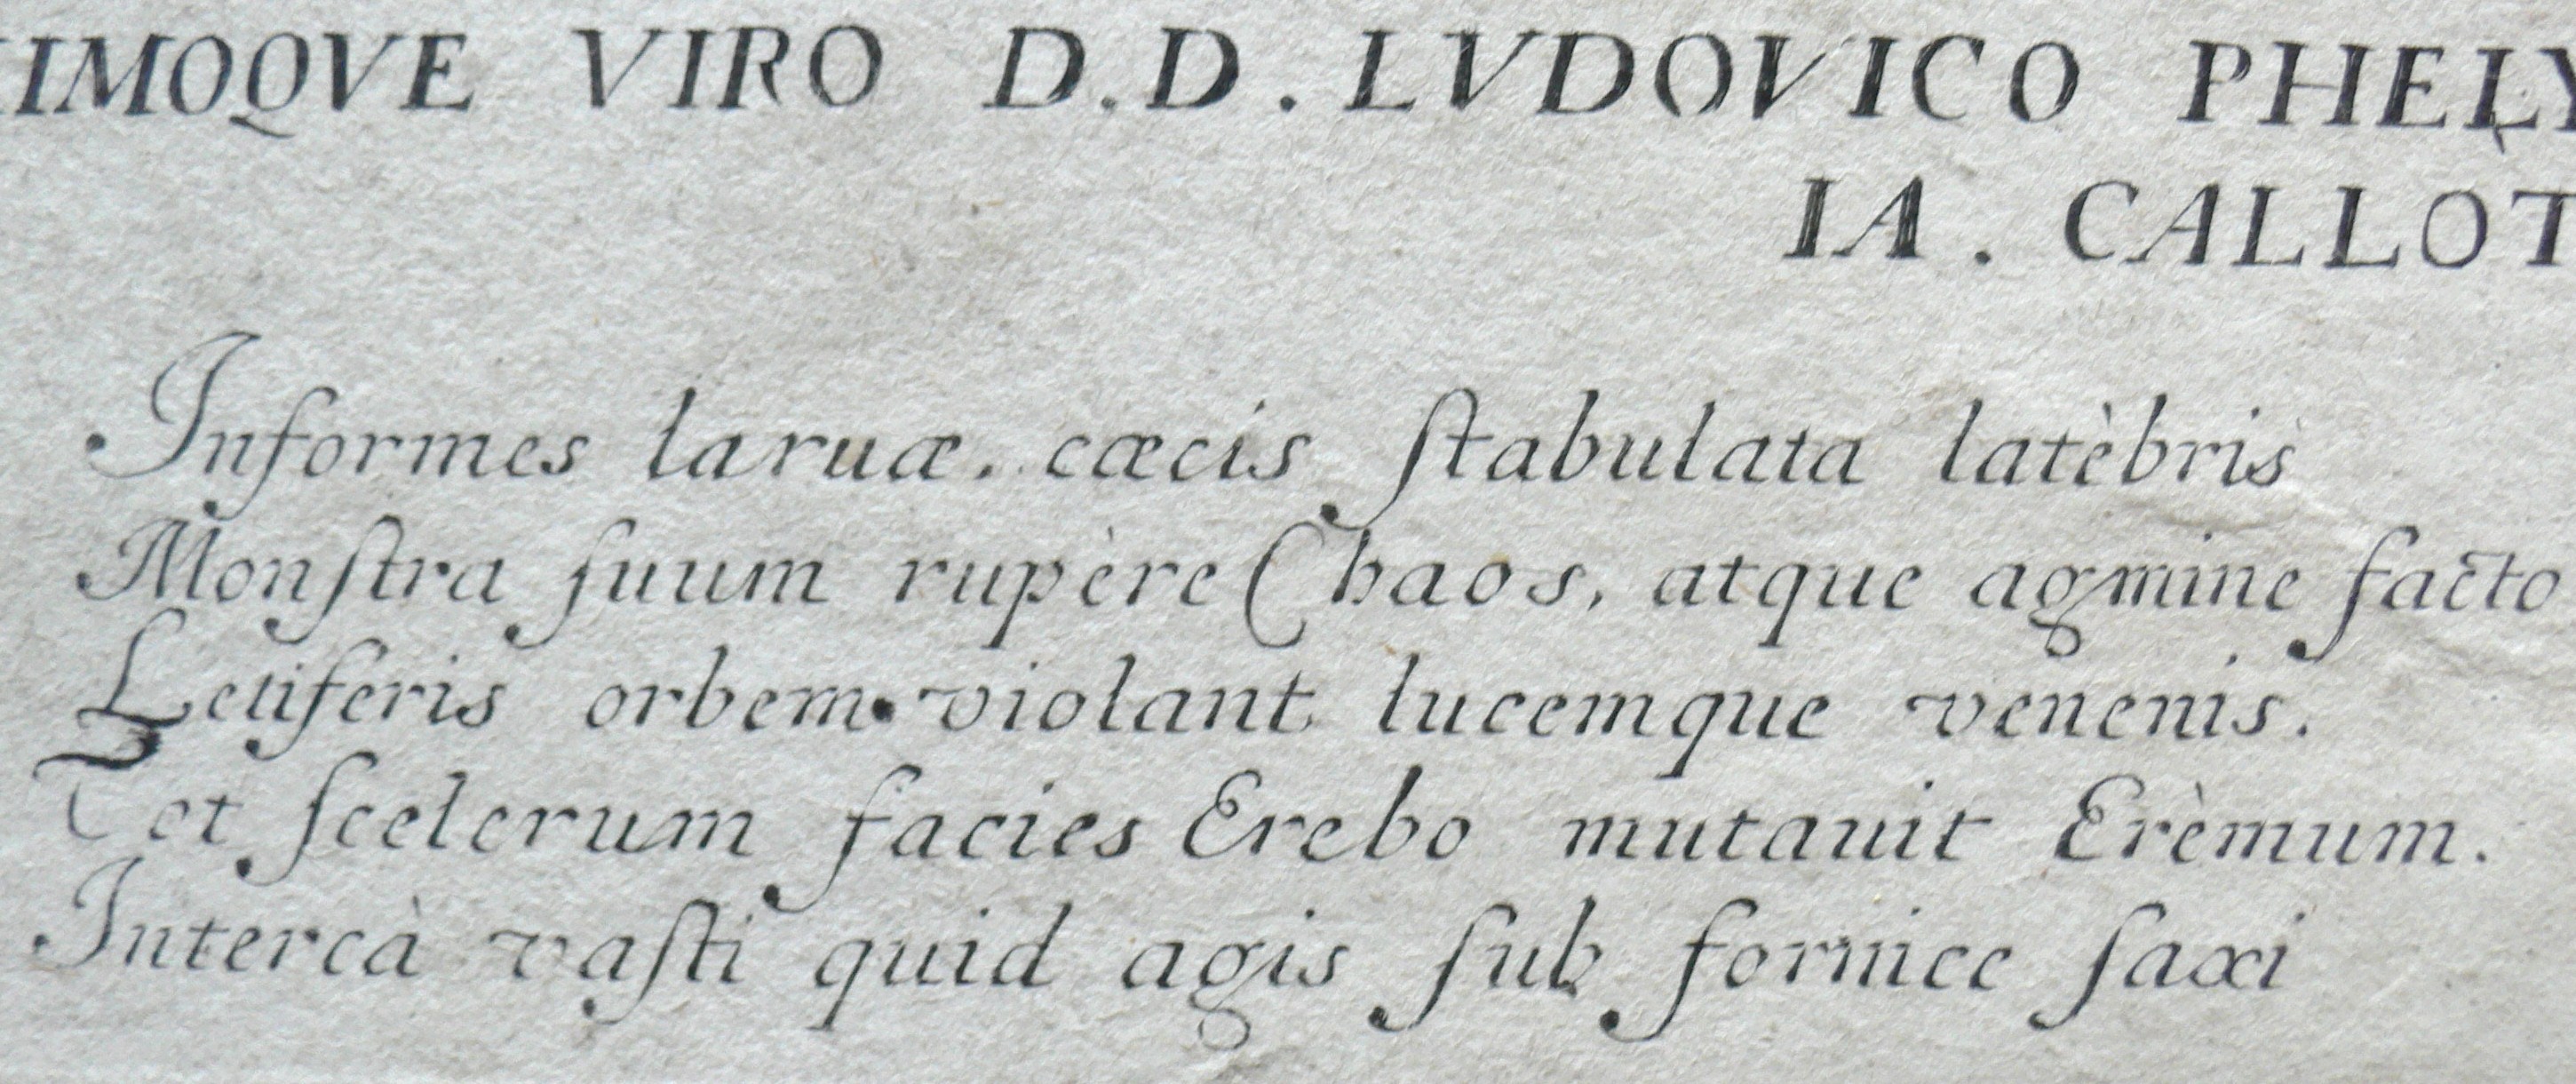 IMOQVE VIRO D.D. LVDOVICO PHELY
IA. CALLOT
Informes laruæ. cæcis stabulata latèbris
Monstra suum rupère Chaos, atque agmine facto
Letiferis orbem violant lucemque venenis.
Tot scelerum facies Erebo mutauit Erèmum.
Intereà vasti quid agis sub fornice saxi